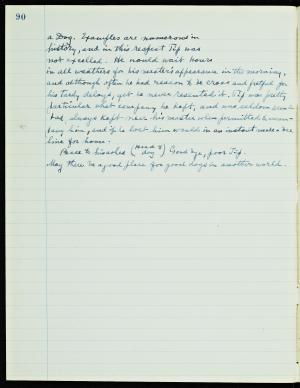 90
a Dog. Examples are numerous in
history, and in this respect Tip was
not excelled. He would wait hours
in all weathers for his master's appearance in the morning,
and although often he had reason to be cross and fretful for
his tardy delays, yet he never resented it. Tip was pretty
particular what company he kept, and was seldom
had, always kept near his master when permitted to accom-
pany him, and if he lost him would in an instant make a bee
line for home.
Peace to his ashes (
dog) Good bye, poor Tip.
May there be a good place for good dogs in another world.